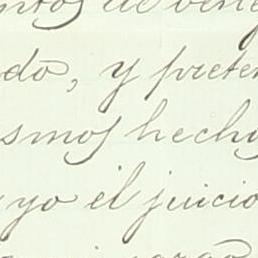 ntos de bene
do, y preten
smos hecho
yo el juicio